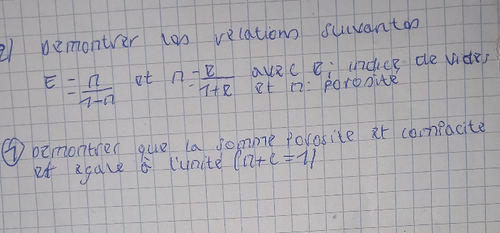 2) Demontrer les relations suivantes
E = n/1-n et n = e/1+e avec e: indice de vides
et n: porosite
④ Demontrer que la somme porosite et compacite
et egale à l'unite (n+c=1)